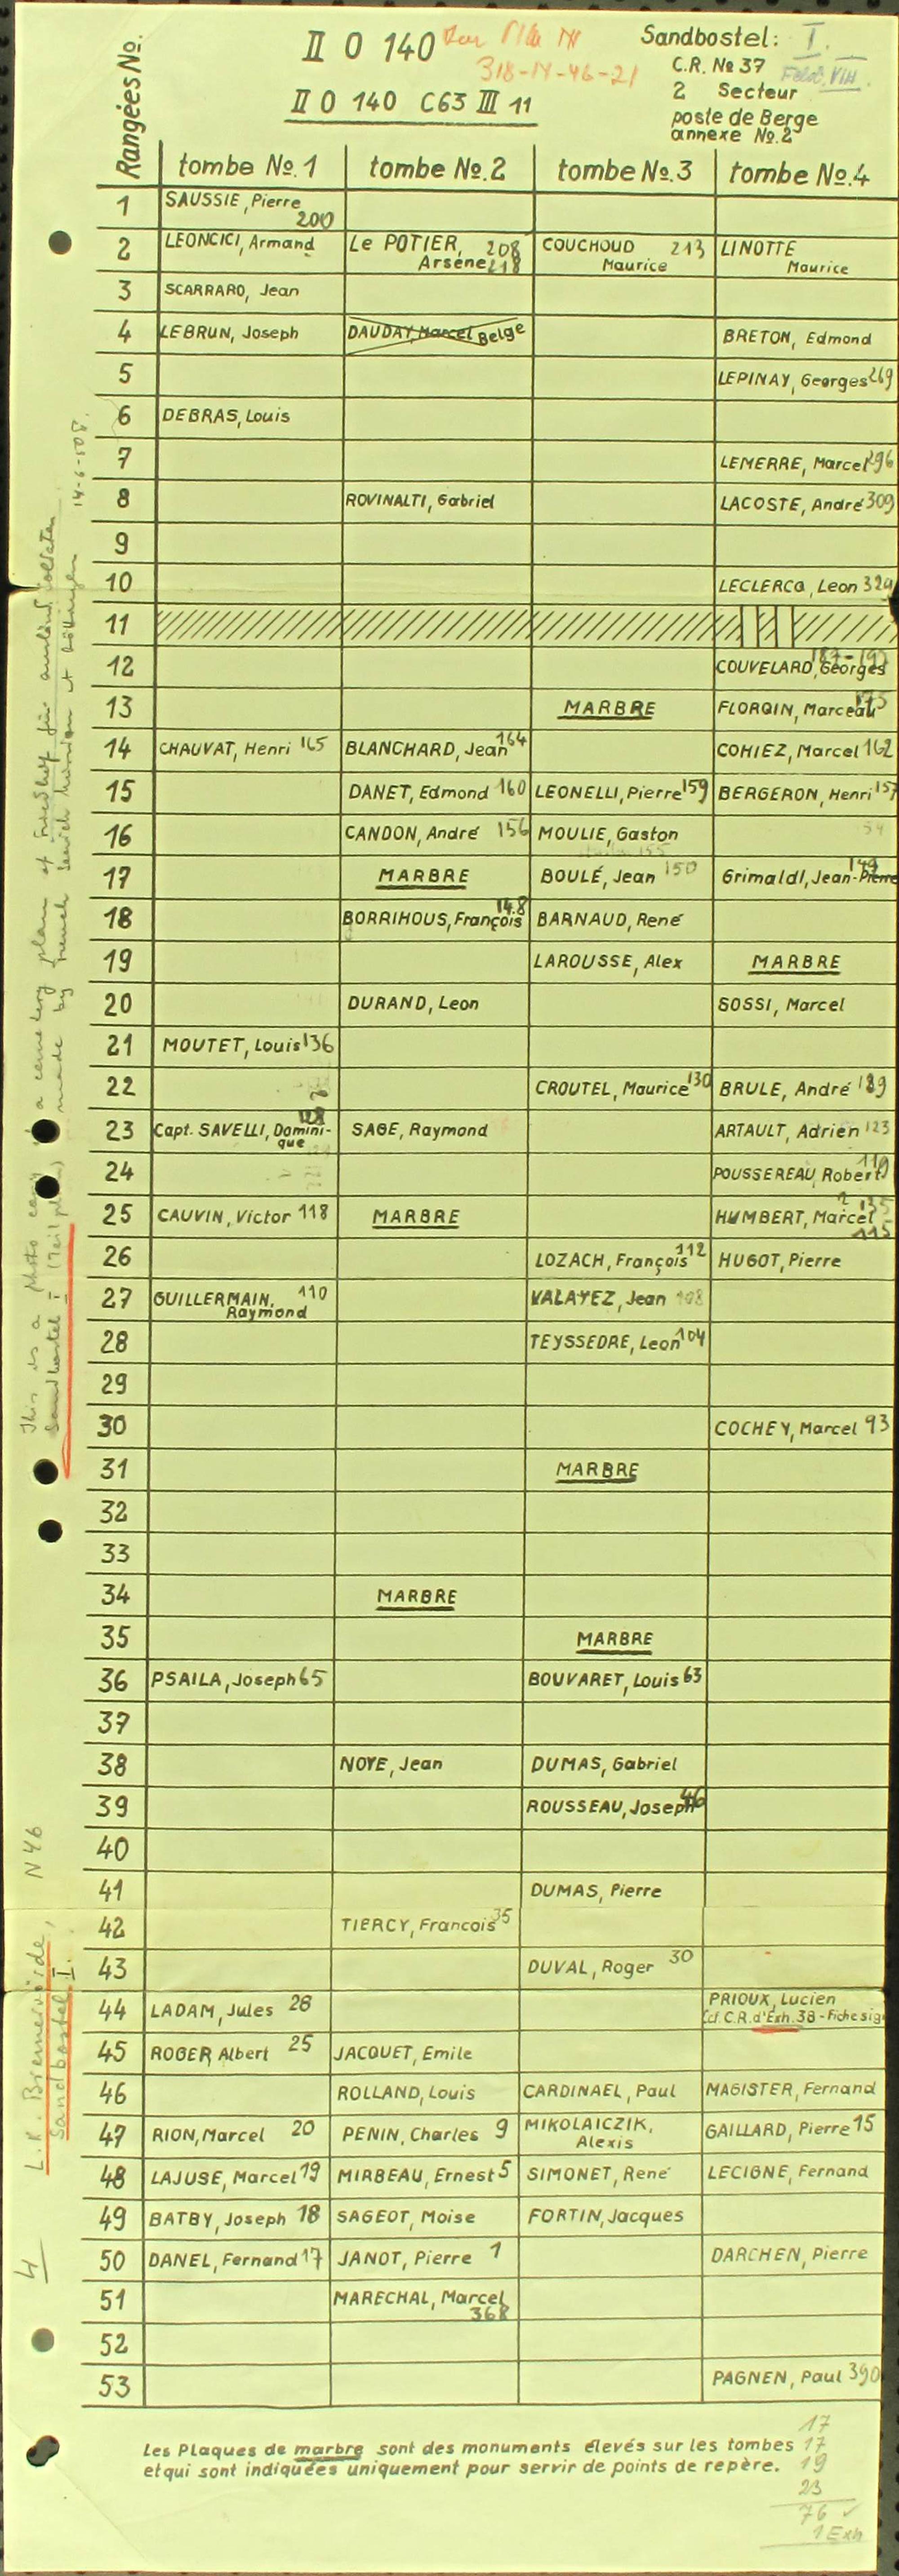 II O 140
318-IV-46-21
II O 140 C63 III 11
Sandbostel: I.
C.R. № 37
2 Secteur
poste de Berge
annexe No.2
Rangées No.
tombe No.1 tombe No.2 tombe No.3 tombe No.4
1 SAUSSIE, Pierre
200
2 LEONCICI, Armand Le POTIER, 208 COUCHOUD 213 LINOTTE
Arsène 218 Maurice Maurice
3 SCARRARO, Jean
4 LEBRUN, Joseph DAUDAY, Marcel Belge BRETON, Edmond
5 LEPINAY, Georges 269
6 DEBRAS, Louis
7 LEMERRE, Marcel 296
8 ROVINALTI, Gabriel LACOSTE, André 309
9
10 LECLERCQ, Leon 329
11
12 COUVELARD, Georges
13 MARBRE FLORQIN, Marceau
14 CHAUVAT, Henri 165 BLANCHARD, Jean 164 COHIEZ, Marcel 162
15 DANET, Edmond 160 LEONELLI, Pierre 159 BERGERON, Henri 157
16 CANDON, André 156 MOULIE, Gaston
17 MARBRE BOULÉ, Jean 150 Grimaldi, Jean-Pierre 149
18 BORRIHOUS, François 148 BARNAUD, René
19 LAROUSSE, Alex MARBRE
20 DURAND, Leon SOSSI, Marcel
21 MOUTET, Louis 136
22 CROUTEL, Maurice 130 BRULE, André
23 Capt. SAVELLI, Domini- SAGE, Raymond ARTAULT, Adrien 123
que
24 POUSSEREAU, Robert 119
25 CAUVIN, Victor 118 MARBRE HUMBERT, Marcel
115
26 LOZACH, François 112 HUGOT, Pierre
27 GUILLERMAIN, 110 VALAYEZ, Jean 108
Raymond
28 TEYSSEDRE, Leon 104
29
30 COCHEY, Marcel 93
31 MARBRE
32
33
34 MARBRE
35 MARBRE
36 PSAILA, Joseph 65 BOUVARET, Louis 63
37
38 NOYE, Jean DUMAS, Gabriel
39 ROUSSEAU, Joseph 46
40
41 DUMAS, Pierre
42 TIERCY, Francois 35
43 DUVAL, Roger 30
44 LADAM, Jules 28 PRIOUX, Lucien
(cf. C.R. d'Exh. 38 - Fiche sig
45 ROGER Albert 25 JACQUET, Emile
46 ROLLAND, Louis CARDINAEL, Paul MAGISTER, Fernand
47 RION, Marcel 20 PENIN, Charles 9 MIKOLAICZIK, GAILLARD, Pierre 15
Alexis
48 LAJUSE, Marcel 19 MIRBEAU, Ernest 5 SIMONET, René LECIGNE, Fernand
49 BATBY, Joseph 18 SAGEOT, Moise FORTIN, Jacques
50 DANEL, Fernand 17 JANOT, Pierre 1 DARCHEN, Pierre
51 MARECHAL, Marcel
368
52
53 PAGNEN, Paul 390
Les Plaques de marbre sont des monuments élevés sur les tombes
et qui sont indiquées uniquement pour servir de points de repère.
17
17
19
23
76 ✓
1 Exh
This is a photo copy of a cemetery plan of Friedhof für ausländ. Soldaten
Sandbostel I (Teil plan) made by french
14-6-50
L.K. Bremervörde, N46
Sandbostel I.
4